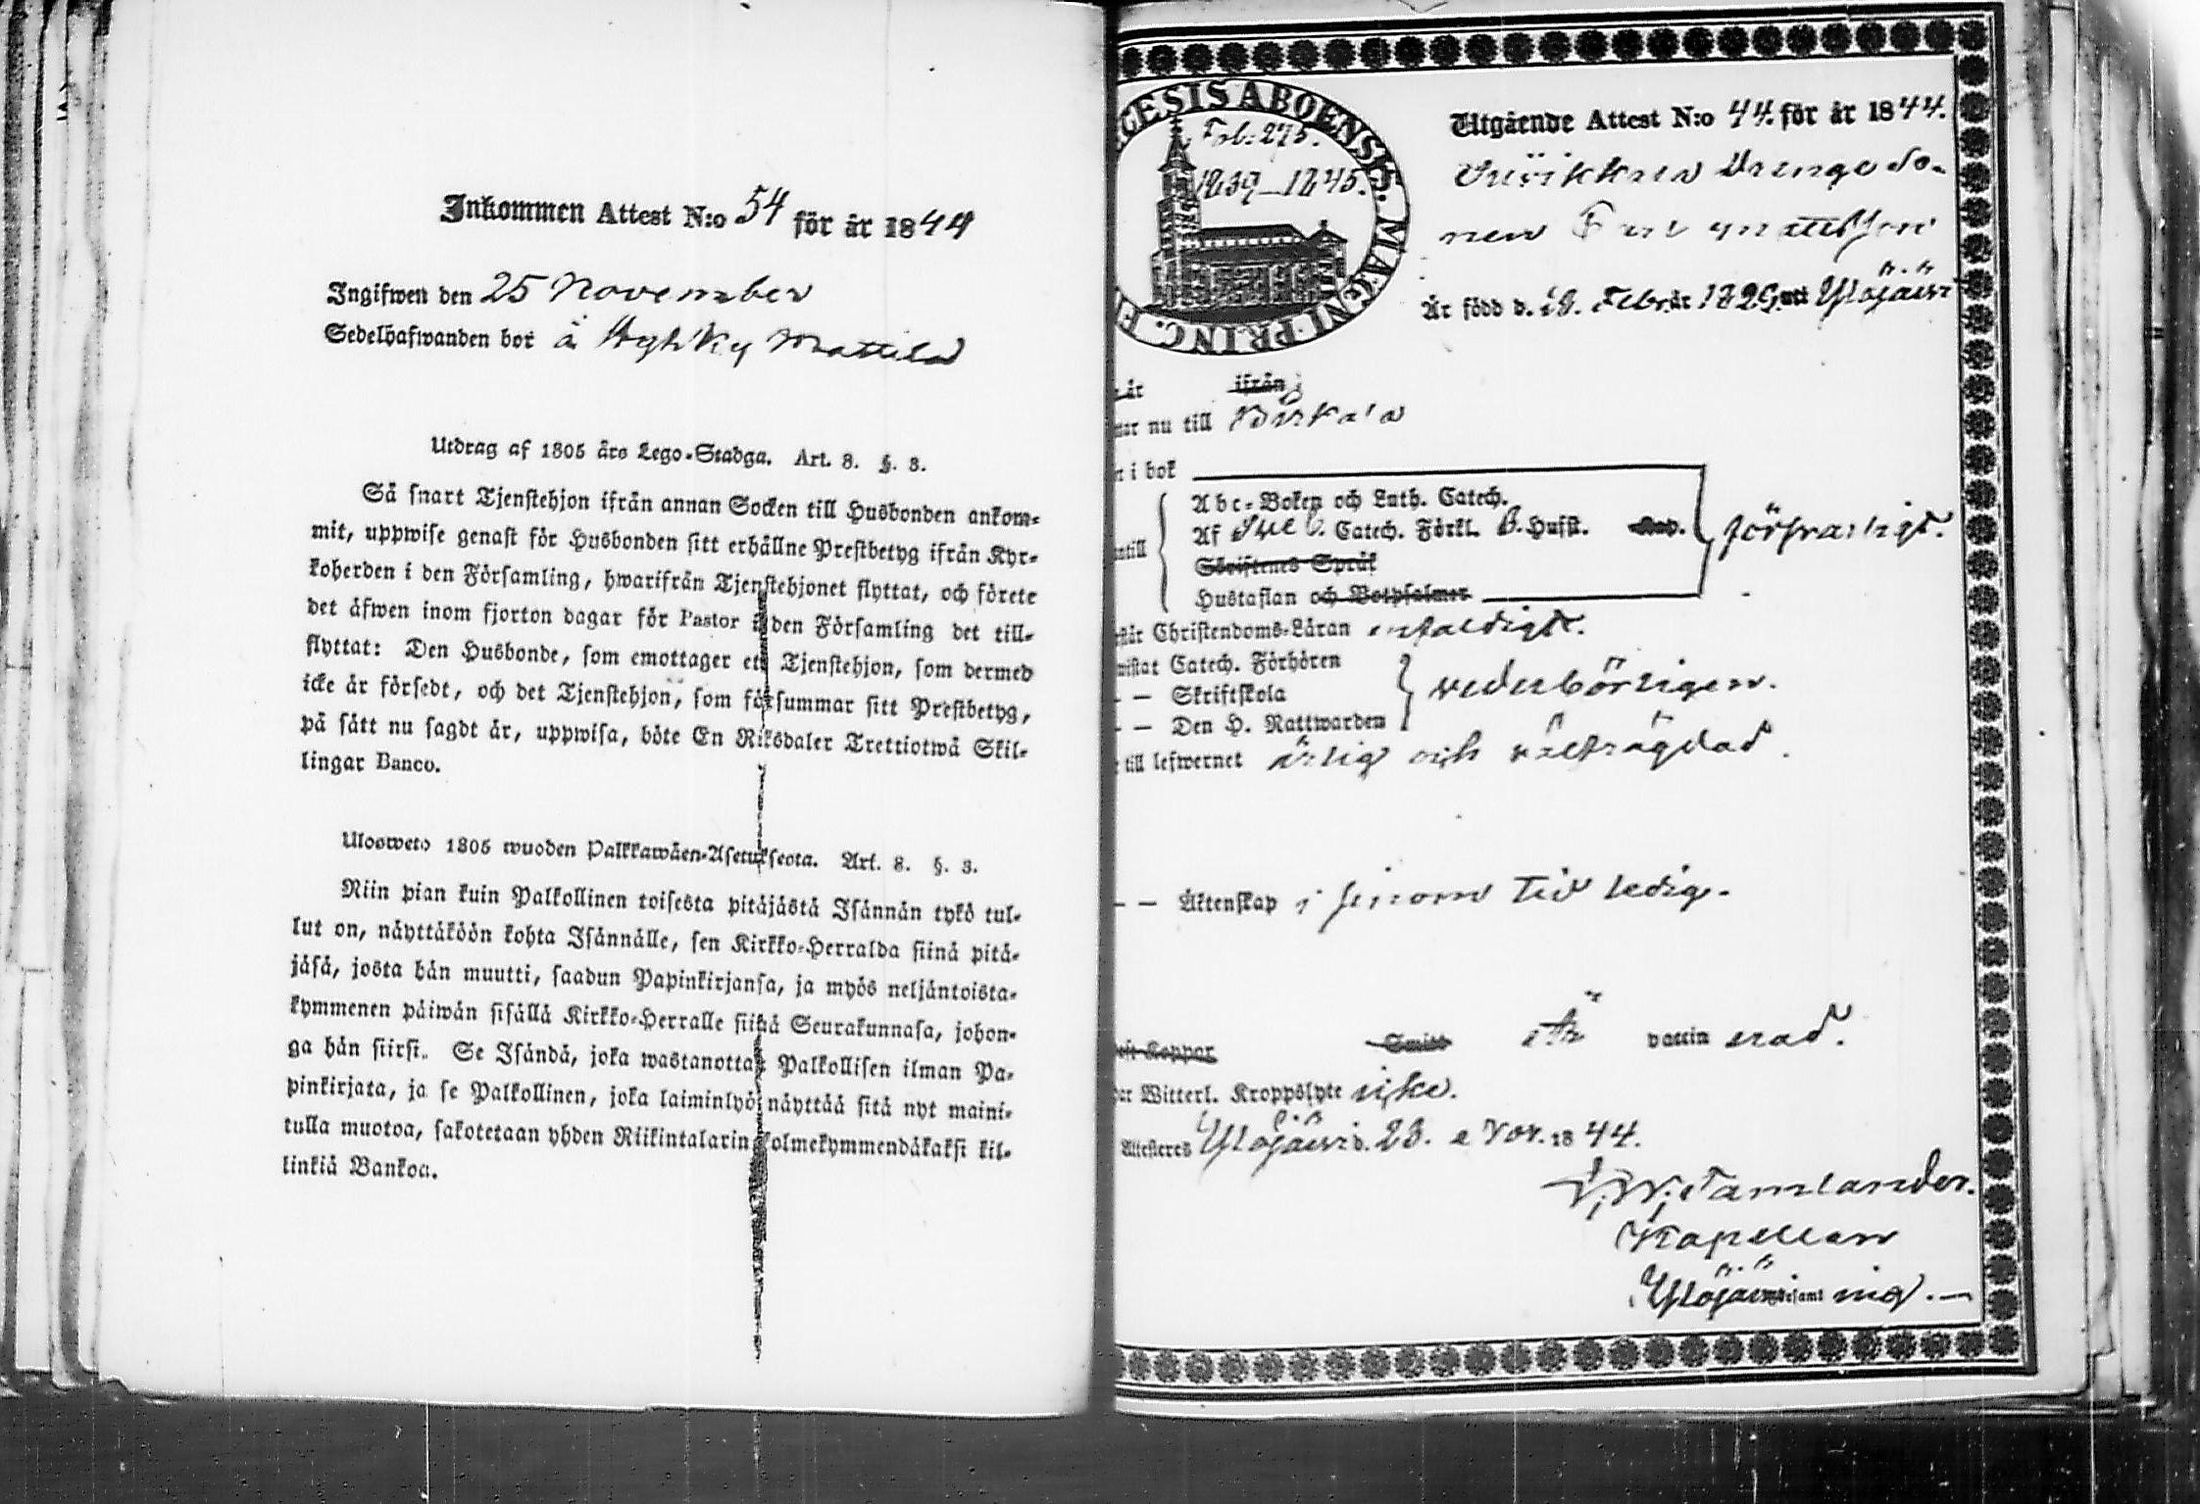 Inkommen Attest N:o 54 för år 1844
Ingifwen den 25 November
Sedelhafwanden bor å Hyhky Mattila
Utdrag af 1805 års Lego-Stadga. Art. 8. §. 3.
Så snart Tjenstehjon ifrån annan Socken till Husbonden ankom-
mit, uppwise genast för Husbonden sitt erhållne Prestbetyg ifrån Kyr-
koherden i den Församling, hwarifrån Tjenstehjonet flyttat, och förete
det äfwen inom fjorton dagar för Pastor i den Församling det till-
flyttat: Den Husbonde, som emottager ett Tjenstehjon, som dermed
icke är försedt, och det Tjenstehjon, som försummar sitt Prestbetyg,
på sätt nu sagdt är, uppwisa, böte En Riksdaler Trettiotwå Skil-
lingar Banco.
Ulosweto 1805 wuoden Palkkawäen-Asetuksesta. Art. 8. §. 3.
Niin pian kuin Palkollinen toisesta pitäjästä Isännän tykö tul-
lut on, näyttäköön kohta Isännälle, sen Kirkko-Herralda siinä pitä-
jäsä, josta hän muutti, saadun Papinkirjansa, ja myös neljäntoista-
kymmenen päiwän sisällä Kirkko-Herralle siinä Seurakunnasa, johon-
ga hän siirsi. Se Isändä, joka wastanottaa Palkollisen ilman Pa-
pinkirjata, ja se Palkollinen, joka laiminlyö näyttää sitä nyt maini-
tulla muotoa, sakotetaan yhden Riikintalarin kolmekymmendäkaksi kil-
linkiä Bankoa.
ECESIS ABOENSIS. MAGNI PRINC. F
Fol: 275.
1839–1845.
Utgående Attest N:o 44. för år 1844.
Drenge So-
nen Mattsson
Är född d. Febr. år 182 uti Ylöjärvi
år ifrån
nu till Birkala
i bok
Abc-Boken och Luth. Catech.
Af Sveb. Catech. Förkl. B. Husst. Kap.
Skriftenes Språk
Hustaflan och Botpsalmer
försvarligt.
Christendoms-Läran enfaldigt.
Catech. Förhören
— — Skriftskola
— — Den H. Nattwarden
vederbörligen.
till lefwernet ärlig och välfrägdad.
— — Äktenskap i sinom tid ledig.
Koppor Smitt är vaccinerad.
Witterl. Kroppslyte icke.
Attesteres Ylöjärvi d. 23. Nov. 1844.
Tamlander.
Kapellan
Ylöjärvi samt